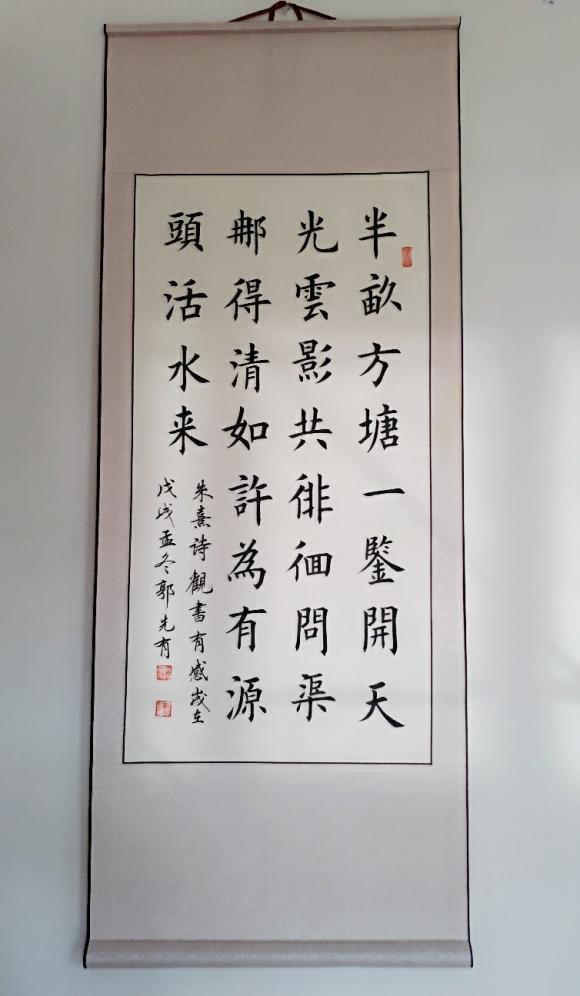 半畝方塘一鑒開天
光雲影共徘徊問渠
那得清如許為有源
頭活水来
朱熹詩觀書有感歲在
戊戌孟冬郭先有